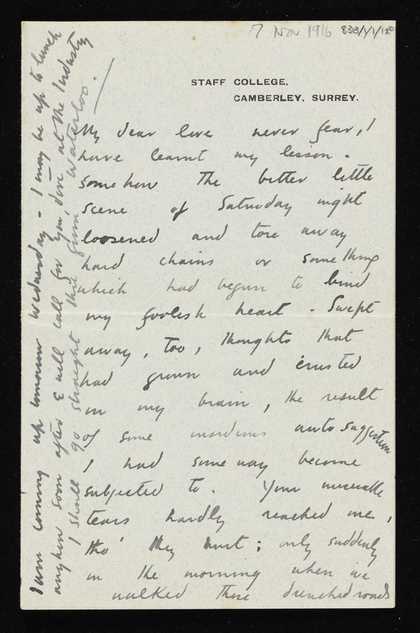 7 Nov 1916
STAFF COLLEGE,
CAMBERLEY, SURREY.
My dear love never fear, I
have learnt my lesson.
Somehow the bitter little
scene of Saturday night
loosened and tore away
hard chains or something
which had begun to bind
my foolish heart. Swept
away, too, thoughts that
had grown and crusted
in my brain, the result
of some insidious auto suggestion
I had some way become
subjected to. Your miserable
tears hardly reached me,
tho' they hurt; only suddenly
in the morning when we
walked those drenched roads
I am coming up tomorrow Wednesday - I may be up to lunch
anyhow soon after & will call for you dire at the Industry
I shall go straight there from Waterloo.